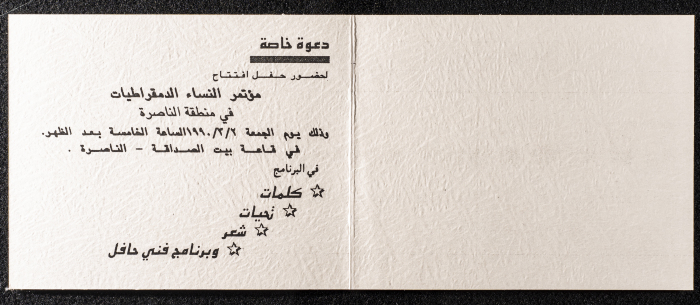 دعوة خاصة
لحضور حفل افتتاح
مؤتمر النساء الدمقراطيات
في منطقة الناصرة
وذلك يوم الجمعة ١٩٩٠/٣/٢الساعة الخامسة بعد الظهر.
في قاعة بيت الصداقة - الناصرة .
في البرنامج
☆ كلمات
☆ تحيات
☆ شعر
☆ وبرنامج فني حافل